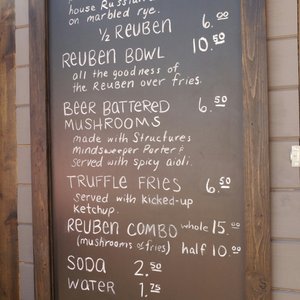 house Russian
on marbled rye.
½ REUBEN 6.00
REUBEN BOWL 10.50
all the goodness of
the REUBEN over fries.
BEER BATTERED 6.50
MUSHROOMS
made with Structures
Mindsweeper Porter &
served with spicy aioli.
TRUFFLE FRIES 6.50
served with kicked-up
ketchup.
REUBEN COMBO whole 15.00
(mushrooms or fries) half 10.00
SODA 2.50
WATER 1.75